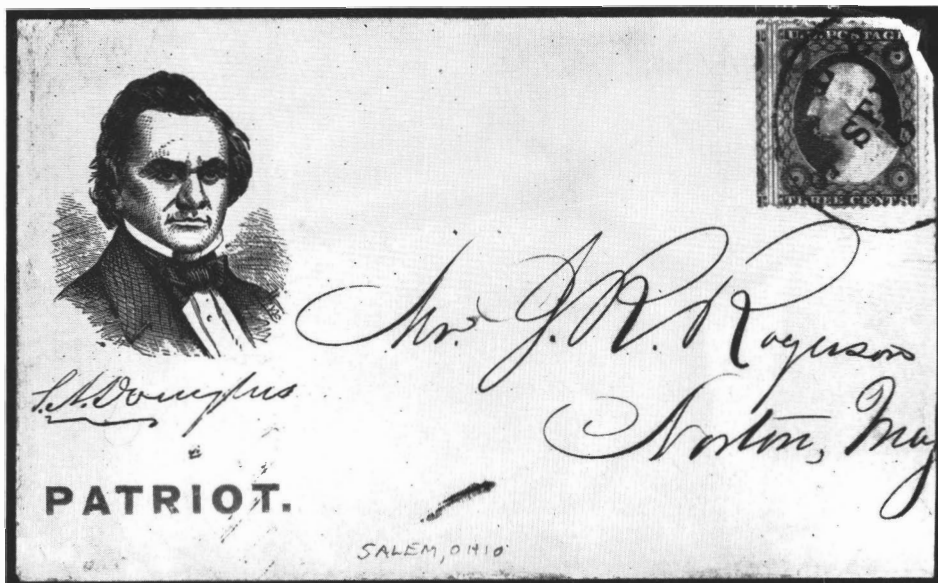 U.S. POSTAGE
THREE CENTS
S.A. Douglas
PATRIOT.
J. R. Rogerson
Norton, Mas
SALEM, OHIO